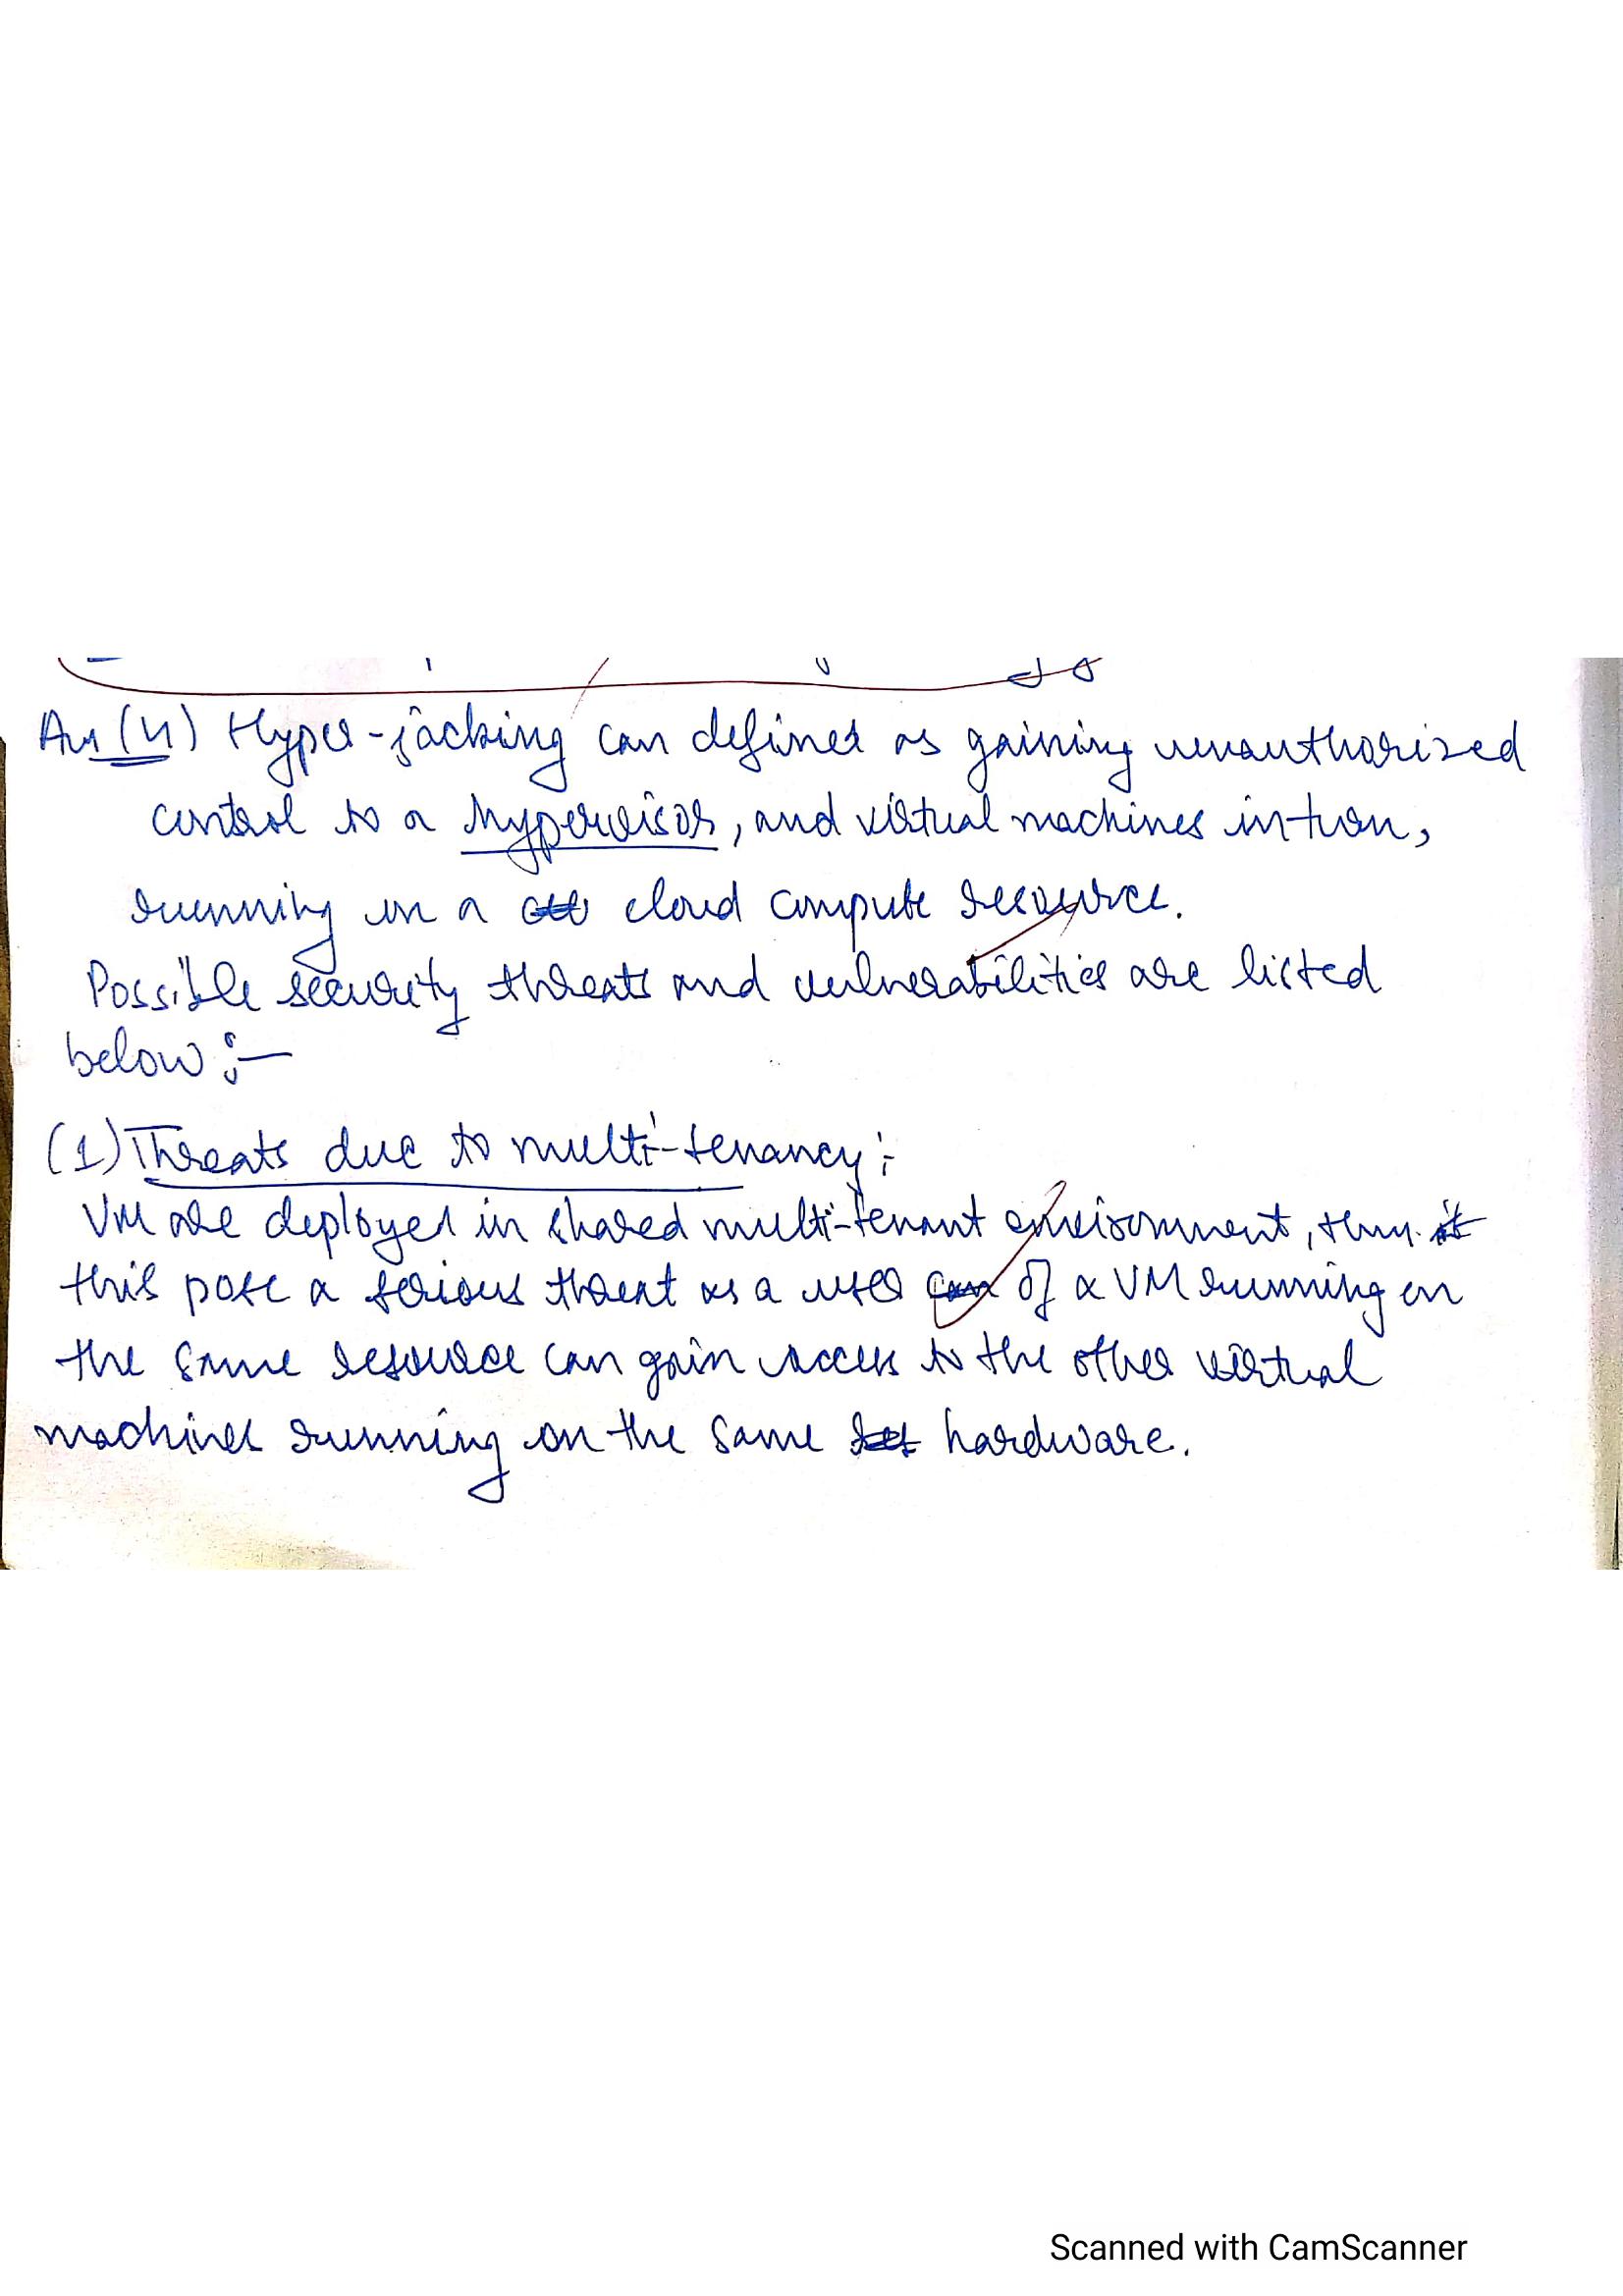 Ans (4) Hyper-jacking can defined as gaining unauthorized
control to a hypervisor, and virtual machines in turn,
running in a cloud compute resource.
Possible security threats and vulnerabilities are listed
below :-
(1) Threats due to multi-tenancy :
VM are deployed in shared multi-tenant environment, thus it
this pose a serious threat as a user can of a VM running on
the same resource can gain access to the other virtual
machines running on the same hardware.
Scanned with CamScanner